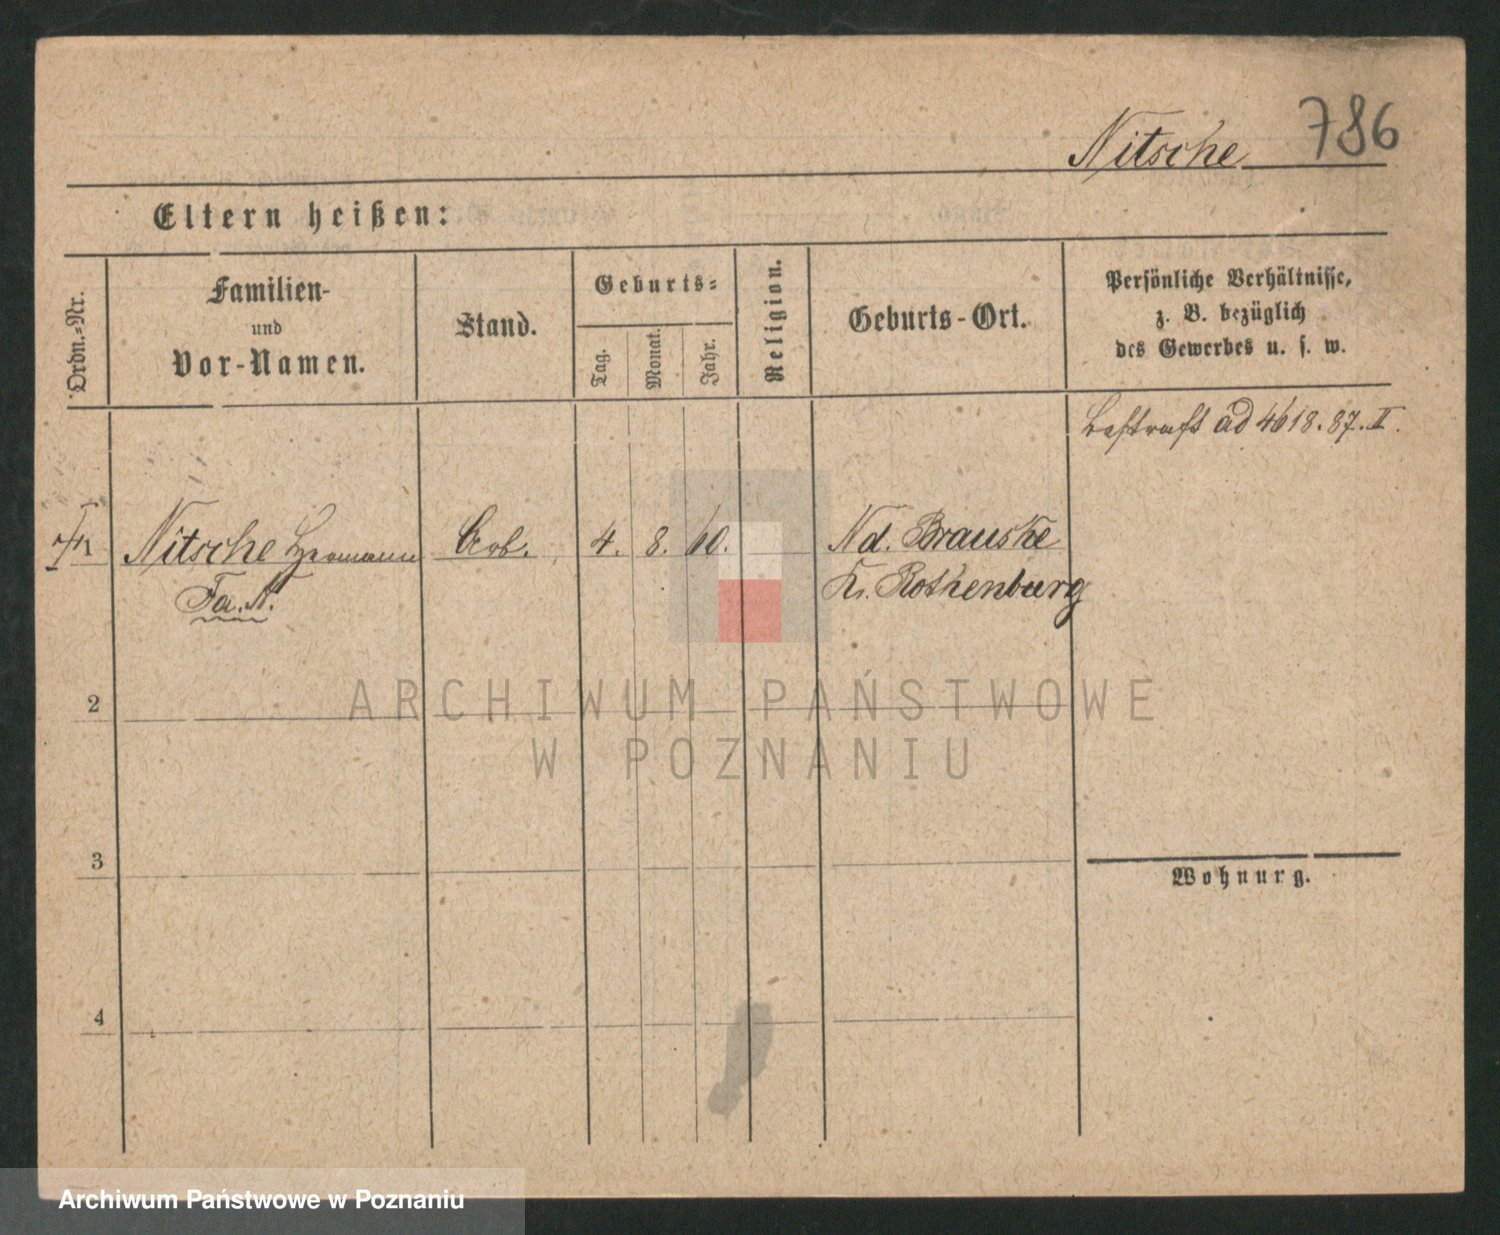 Nitsche 786
Eltern heißen:
Ordn.-Nr.
Familien-
und
Vor-Namen.
Stand.
Geburts-
Tag.
Monat.
Jahr.
Religion.
Geburts-Ort.
Persönliche Verhältnisse,
z. B. bezüglich
des Gewerbes u. s. w.
Bestraft ad 4618.87.II.
1 Nitsche Hermann Arb. 4. 8. 60. Nd. Brauske
Kr. Rothenburg
2
ARCHIWUM PAŃSTWOWE
W POZNANIU
3
Wohnung.
4
Archiwum Państwowe w Poznaniu